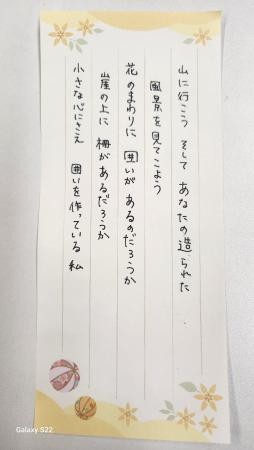 山に行こう そして あなたの造られた
風景を見てこよう
花のまわりに 囲いが あるのだろうか
崖の上に 柵があるだろうか
小さな心にさえ 囲いを作っている 私
Galaxy S22